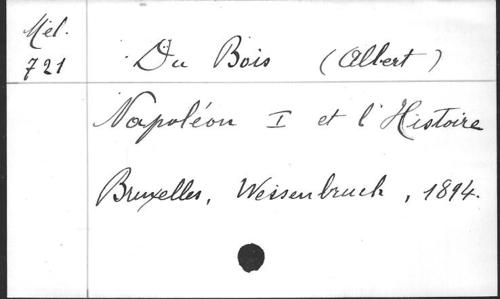 Mél.
721
Du Bois (Albert)
Napoléon I et l'Histoire
Bruxelles, Weissenbruch, 1894.